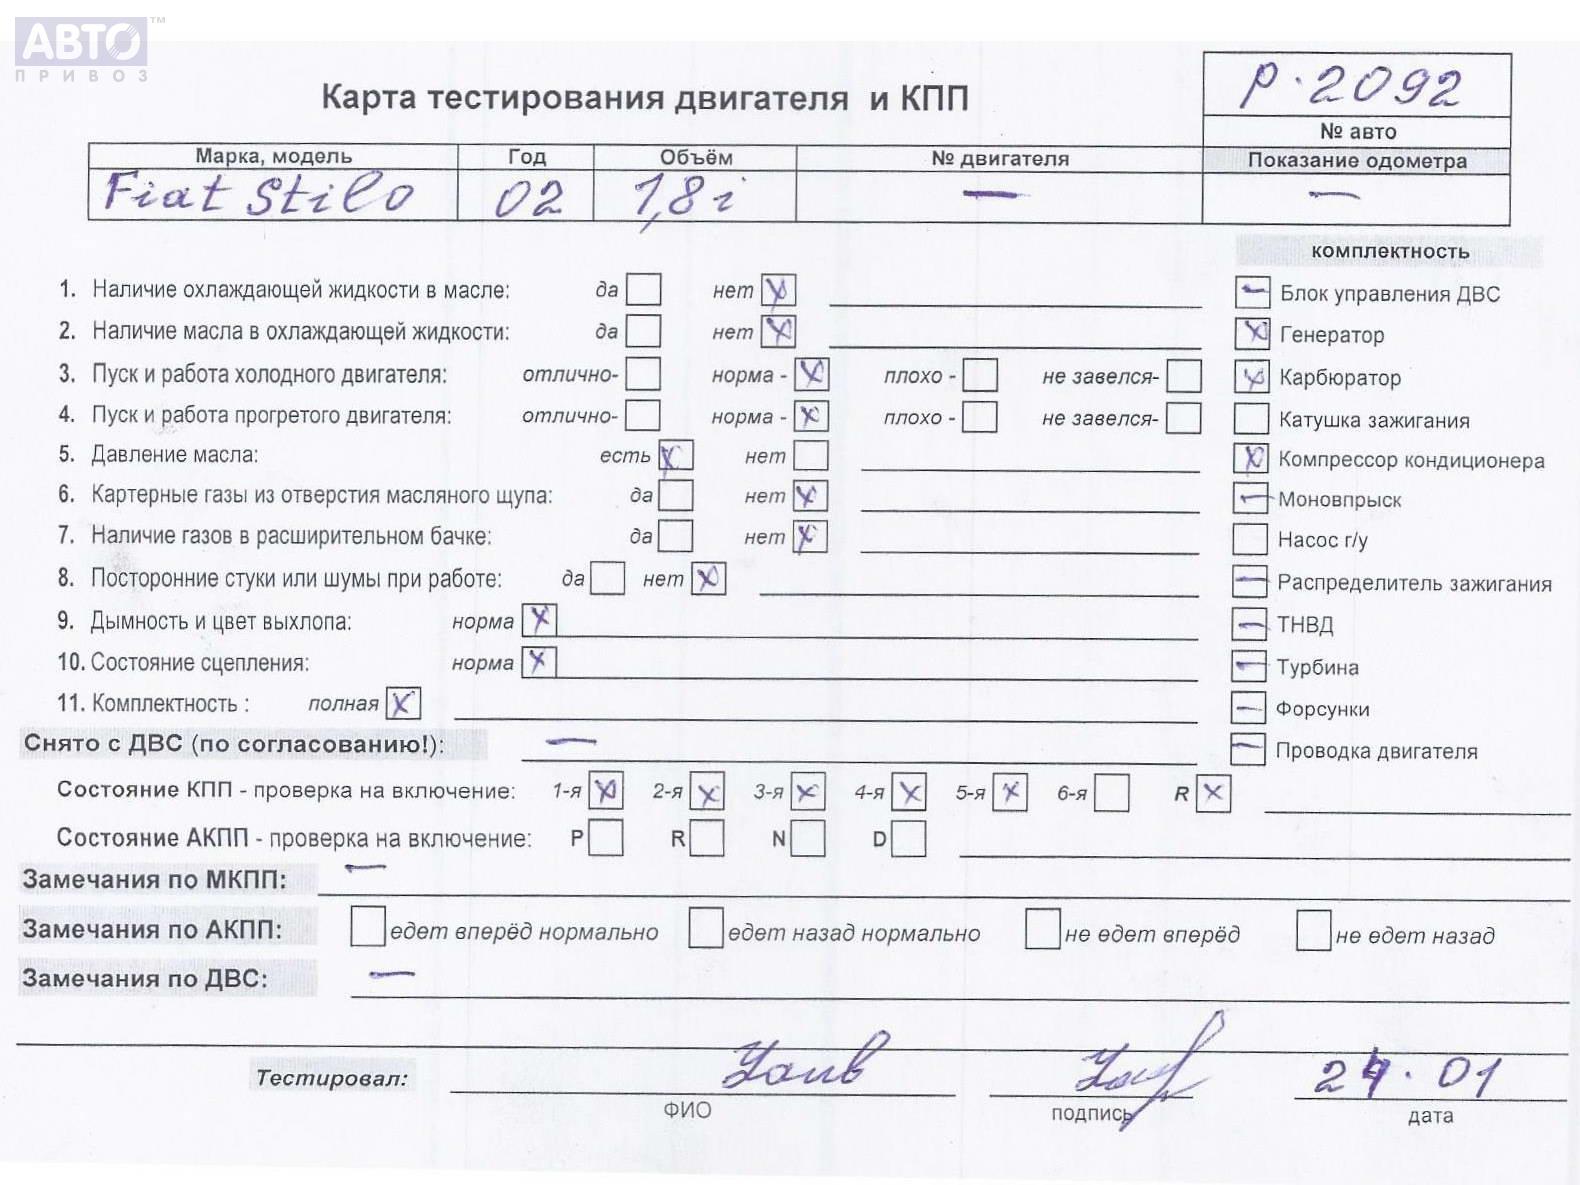 АВТО™
ПРИВОЗ
Карта тестирования двигателя и КПП
P·2092
№ авто
Марка, модель Год Объём № двигателя Показание одометра
Fiat Stilo 02 1,8i — —
комплектность
1. Наличие охлаждающей жидкости в масле: да нет x
2. Наличие масла в охлаждающей жидкости: да нет x
3. Пуск и работа холодного двигателя: отлично- норма - x плохо - не завелся-
4. Пуск и работа прогретого двигателя: отлично- норма - x плохо - не завелся-
5. Давление масла: есть x нет
6. Картерные газы из отверстия масляного щупа: да нет x
7. Наличие газов в расширительном бачке: да нет x
8. Посторонние стуки или шумы при работе: да нет x
9. Дымность и цвет выхлопа: норма x
10. Состояние сцепления: норма x
11. Комплектность : полная x
— Блок управления ДВС
x Генератор
x Карбюратор
Катушка зажигания
x Компрессор кондиционера
— Моновпрыск
Насос г/у
— Распределитель зажигания
— ТНВД
— Турбина
— Форсунки
— Проводка двигателя
Снято с ДВС (по согласованию!): —
Состояние КПП - проверка на включение: 1-я x 2-я x 3-я x 4-я x 5-я x 6-я R x
Состояние АКПП - проверка на включение: P R N D
Замечания по МКПП: —
Замечания по АКПП: едет вперёд нормально едет назад нормально не едет вперёд не едет назад
Замечания по ДВС: —
Тестировал: 24.01
ФИО подпись дата